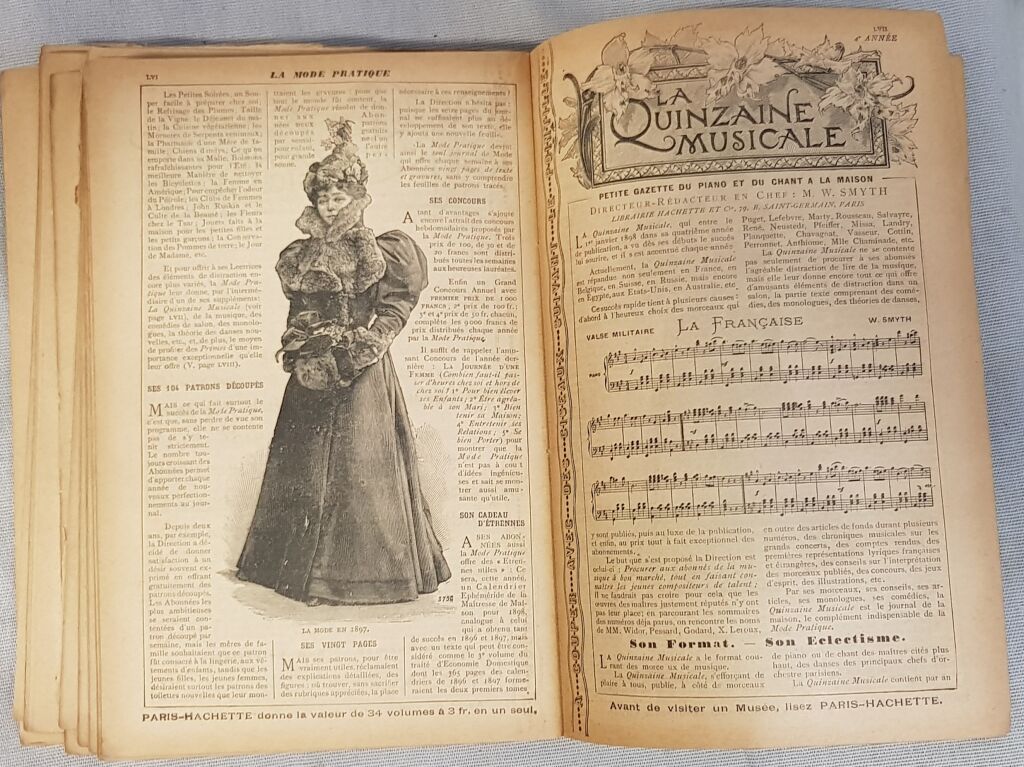 LVI
LA MODE PRATIQUE
Les Petites Soirées, un Sou-
per facile à préparer chez soi;
le Refrisage des Plumes; Taille
de la Vigne; le Déjeuner du ma-
tin; la Cuisine végétarienne; les
Morsures de Serpents venimeux;
la Pharmacie d'une Mère de fa-
mille; Chiens d'utilité; Ce qu'on
emporte dans sa Malle; Boissons
rafraîchissantes pour l'Été; la
meilleure Manière de nettoyer
les Bicyclettes; la Femme en
Amérique; Pour empêcher l'odeur
du Pétrole; les Clubs de Femmes
à Londres; John Ruskin et le
Culte de la Beauté; les Fleurs
chez le Tsar; Jouets faits à la
maison pour les petites filles et
les petits garçons; la Conserva-
tion des Pommes de terre; le Jour
de Madame, etc.
Et pour offrir à ses Lectrices
des éléments de distraction en-
core plus variés, la Mode Pra-
tique leur donne, par l'intermé-
diaire d'un de ses suppléments:
La Quinzaine Musicale (voir
page LVII), de la musique, des
comédies de salon, des monolo-
gues, la théorie des danses nou-
velles, etc., et, de plus, le moyen
de profiter des Primes d'une im-
portance exceptionnelle qu'elle
leur offre (V. page LVIII).
SES 104 PATRONS DÉCOUPÉS
MAIS ce qui fait surtout le
succès de la Mode Pratique,
c'est que, sans perdre de vue son
programme, elle ne se contente
pas de s'y te-
nir strictement.
Le nombre tou-
jours croissant des
Abonnées permet
d'apporter chaque
année de nou-
veaux perfection-
nements au jour-
nal.
Depuis deux
ans, par exemple,
la Direction a dé-
cidé de donner
satisfaction à un
désir souvent ex-
primé en offrant
gratuitement des
patrons découpés.
Les Abonnées les
plus ambitieuses
se seraient con-
tentées d'un pa-
tron découpé par
semaine, mais les mères de fa-
mille souhaitaient que ce patron
fût consacré à la lingerie, aux vê-
tements d'enfants, tandis que les
jeunes filles, les jeunes femmes,
désiraient surtout les patrons des
toilettes nouvelles que leur mon-
traient les gravures; pour que
tout le monde fût content, la
Mode Pratique résolut de don-
ner aux Abon-
nées deux patrons
découpés gratuits
par semaine:
SES VINGT PAGES
MAIS ses patrons, pour être
vraiment utiles, réclament
des explications détaillées, des
figures; où trouver, sans sacrifier
des rubriques appréciées, la place
nécessaire à ces renseignements?
La Direction n'hésita pas;
puisque les seize pages du jour-
nal ne suffisaient plus au dé-
veloppement de son texte, elle
y ajouta une nouvelle feuille.
La Mode Pratique devint
ainsi le seul journal de Mode
qui offre chaque semaine à ses
Abonnées vingt pages de texte
et gravure, sans y comprendre
les feuilles de patrons tracés.
SES CONCOURS
A tant d'avantages s'ajoute
encore l'attrait des concours
hebdomadaires proposés par
la Mode Pratique. Trois
prix de 100, de 50 et de
20 francs sont distri-
bués toutes les semaines
aux heureuses lauréates.
Enfin un Grand
Concours Annuel avec
PREMIER PRIX DE 1000
FRANCS; 2e prix de 100 fr.;
3e et 4e prix de 50 fr. chacun,
complète les 9000 francs de
prix distribués chaque année
par la Mode Pratique.
Il suffit de rappeler l'amu-
sant Concours de l'année der-
nière: LA JOURNÉE D'UNE
FEMME (Combien faut-il pas-
ser d'heures chez soi et hors de
chez soi? 1° Pour bien élever
ses Enfants; 2° Être agréa-
ble à son Mari; 3° Bien
tenir sa Maison;
4° Entretenir ses
Relations; 5° Se
bien Porter) pour
montrer que la
Mode Pratique
n'est pas à court
d'idées ingénieu-
ses et sait se mon-
trer aussi amu-
sante qu'utile.
SON CADEAU
D'ÉTRENNES
A SES ABON-
NÉES aussi
la Mode Pratique
offre des « Étren-
nes utiles »: Ce
sera, cette année,
un Calendrier
Éphéméride de la
Maîtresse de Mai-
son pour 1898,
analogue à celui
qui a obtenu tant
de succès en 1896 et 1897, mais
avec un texte qui peut être consi-
déré comme le 3e volume du
traité d'Économie Domestique
dont les 365 pages des calen-
driers de 1896 et 1897 forme-
raient les deux premiers tomes.
3756
LA MODE EN 1897.
PARIS-HACHETTE donne la valeur de 34 volumes à 3 fr. en un seul.
LVII
4e ANNÉE
LA
QUINZAINE
MUSICALE
PETITE GAZETTE DU PIANO ET DU CHANT A LA MAISON
DIRECTEUR-RÉDACTEUR EN CHEF: M. W. SMYTH
LIBRAIRIE HACHETTE ET Cie, 79, B. SAINT-GERMAIN, PARIS
LA Quinzaine Musicale, qui entre le
1er janvier 1898 dans sa quatrième année
de publication, a vu dès ses débuts le succès
lui sourire, et il s'est accentué chaque année
Actuellement, la Quinzaine Musicale
est répandue non seulement en France, en
Belgique, en Suisse, en Russie, mais encore
en Égypte, aux États-Unis, en Australie, etc
Ce succès rapide tient à plusieurs causes:
d'abord à l'heureux choix des morceaux qui
Puget, Lefebvre, Marty, Rousseau, Salvayre,
René, Neustedt, Pfeiffer, Missa, Landry,
Planquette, Chavagnat, Vasseur, Cottin,
Perronnet, Anthiome, Mlle Chaminade, etc.
La Quinzaine Musicale ne se contente
pas seulement de procurer à ses abonnés
l'agréable distraction de lire de la musique,
mais elle leur donne encore tout ce qui offre
d'amusants éléments de distraction dans un
salon, la partie texte comprenant des comé-
dies, des monologues, des théories de danses,
VALSE MILITAIRE
LA FRANÇAISE
W. SMYTH
PIANO
y sont publiés, puis au luxe de la publication,
et enfin, au prix tout à fait exceptionnel des
abonnements.
Le but que s'est proposé la Direction est
celui-ci: Procurer aux abonnés de la mu-
sique à bon marché, tout en faisant con-
naître les jeunes compositeurs de talent;
il ne faudrait pas croire pour cela que les
œuvres des maîtres justement réputés n'y ont
pas leur place; en parcourant les sommaires
des numéros déjà parus, on rencontre les noms
de MM. Widor, Pessard, Godard, X. Leroux,
en outre des articles de fonds durant plusieurs
numéros, des chroniques musicales sur les
grands concerts, des comptes rendus, des
premières représentations lyriques françaises
et étrangères, des conseils sur l'interprétation
des morceaux publiés, des concours, des jeux
d'esprit, des illustrations, etc.
Par ses morceaux, ses conseils, ses ar-
ticles, ses monologues, ses comédies, la
Quinzaine Musicale est le journal de la
maison, le complément indispensable de la
Mode Pratique.
Son Format. — Son Eclectisme.
LA Quinzaine Musicale a le format cou-
rant des morceaux de musique.
La Quinzaine Musicale, s'efforçant de
plaire à tous, publie, à côté de morceaux
de piano ou de chant des maîtres cités plus
haut, des danses des principaux chefs d'or-
chestre parisiens.
La Quinzaine Musicale contient par an
Avant de visiter un Musée, lisez PARIS-HACHETTE.